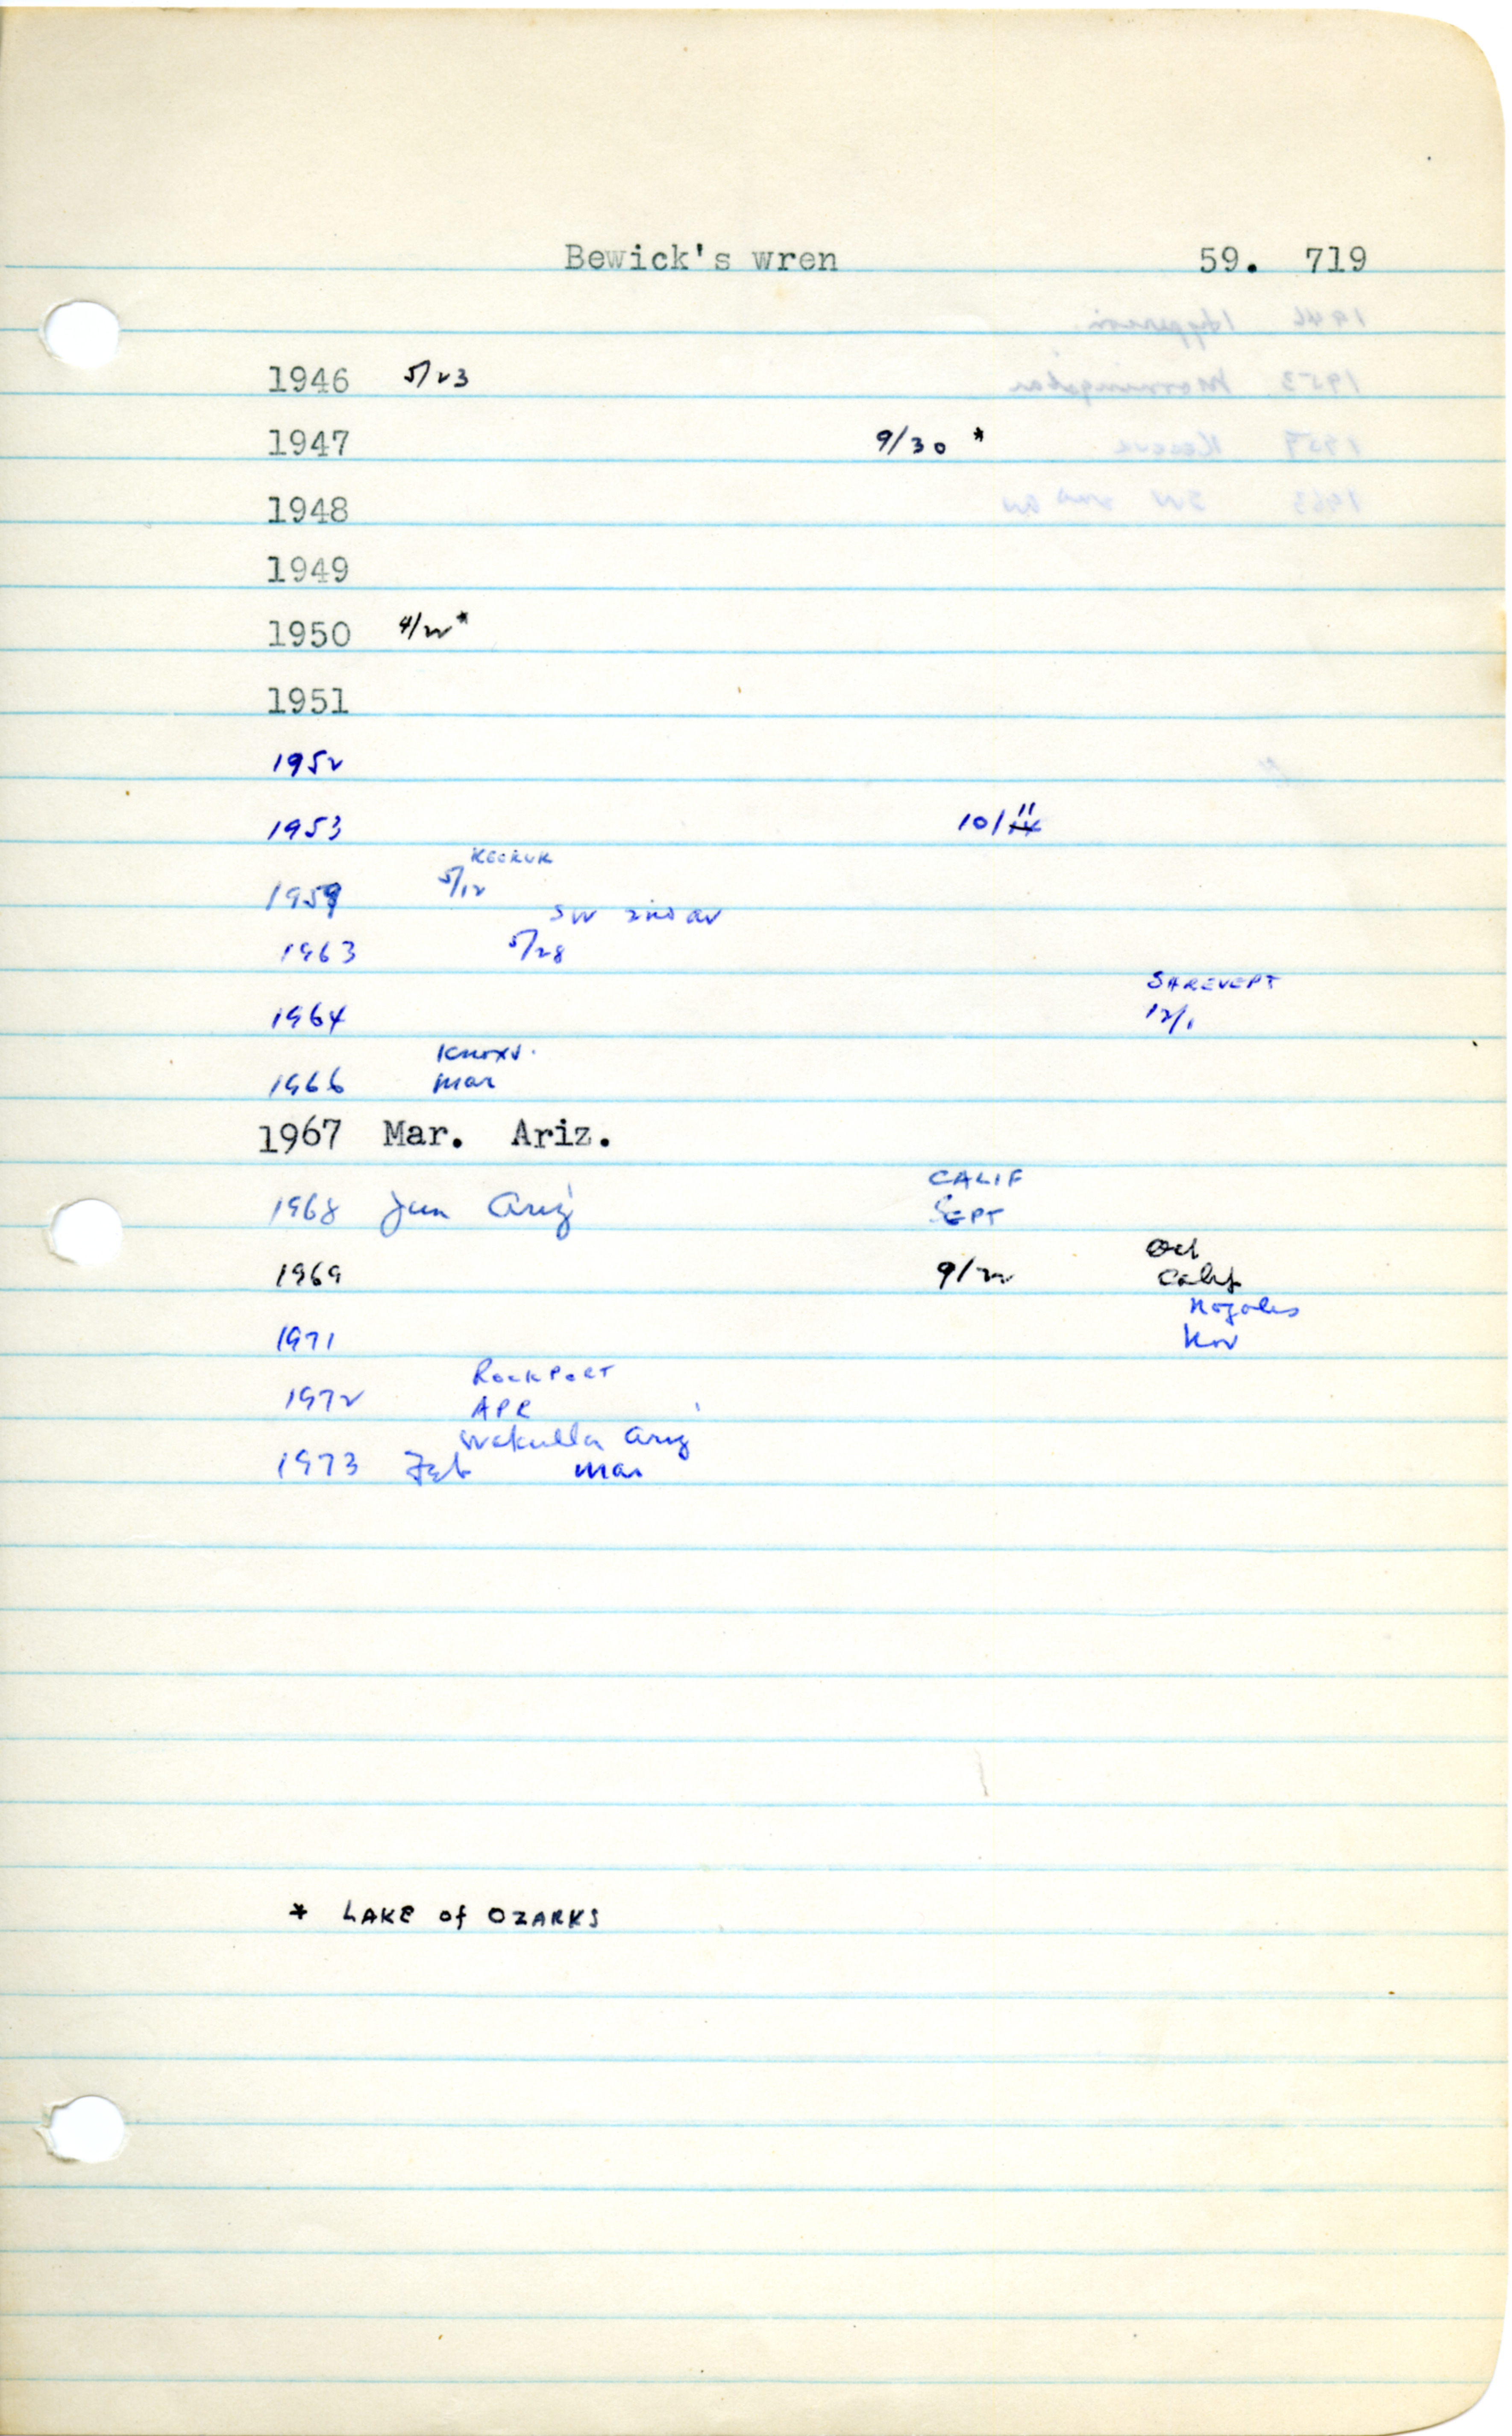 Bewick's wren 59. 719
1946 5/23
1947 9/30 *
1948
1949
1950 4/22 *
1951
1952
1953 10/11
KEOKUK
1959 5/12
SW 2ND AV
1963 5/28
SHREVEPT
1964 12/1
Knoxv.
1966 Mar
1967 Mar. Ariz.
CALIF
1968 Jan Ariz SEPT
Oct
1969 9/22 Calif
Nogales
1971 Nov
ROCKPORT
1972 APR
Wakulla Ariz
1973 Feb Mar
* LAKE of OZARKS